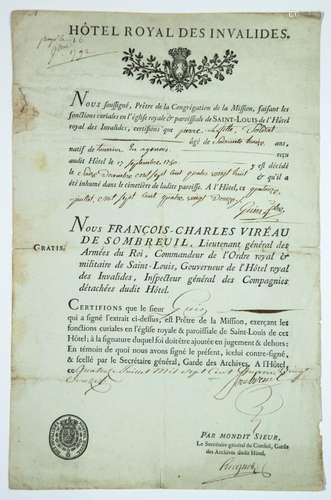 HÔTEL ROYAL DES INVALIDES.
1792
NOUS soussigné, Prêtre de la Congrégation de la Mission, faisant les
fonctions curiales en l'église royale & paroissiale de SAINT-LOUIS de l'Hôtel
royal des Invalides, certifions que pierre Soldat
âgé de Soixante ans,
natif de en agenois reçu
audit Hôtel le 17 Septembre 1760 est décédé
le Seize Decembre cent sept cent quatre vingt huit & qu'il a
été inhumé dans le cimetière de ladite paroisse. A l'Hôtel, ce quatorze
juillet, cent sept cent quatre vingt Douze.
GRATIS.
NOUS FRANÇOIS-CHARLES VIRÉAU
DE SOMBREUIL, Lieutenant général des
Armées du Roi, Commandeur de l'Ordre royal &
militaire de Saint-Louis, Gouverneur de l'Hôtel royal
des Invalides, Inspecteur général des Compagnies
détachées dudit Hôtel.
CERTIFIONS que le sieur
qui a signé l'extrait ci-dessus, est Prêtre de la Mission, exerçant les
fonctions curiales en l'église royale & paroissiale de Saint-Louis de cet
Hôtel; à la signature duquel foi doit être ajoutée en jugement & dehors:
En témoin de quoi nous avons signé le présent, icelui contre-signé,
& scellé par le Secrétaire général, Garde des Archives. A l'Hôtel,
ce Quatorze Juillet Mil Sept Cent quatre vingt
Douze
Sombreuil
PAR MONDIT SIEUR,
Le Secrétaire général du Conseil, Garde
des Archives dudit Hôtel.